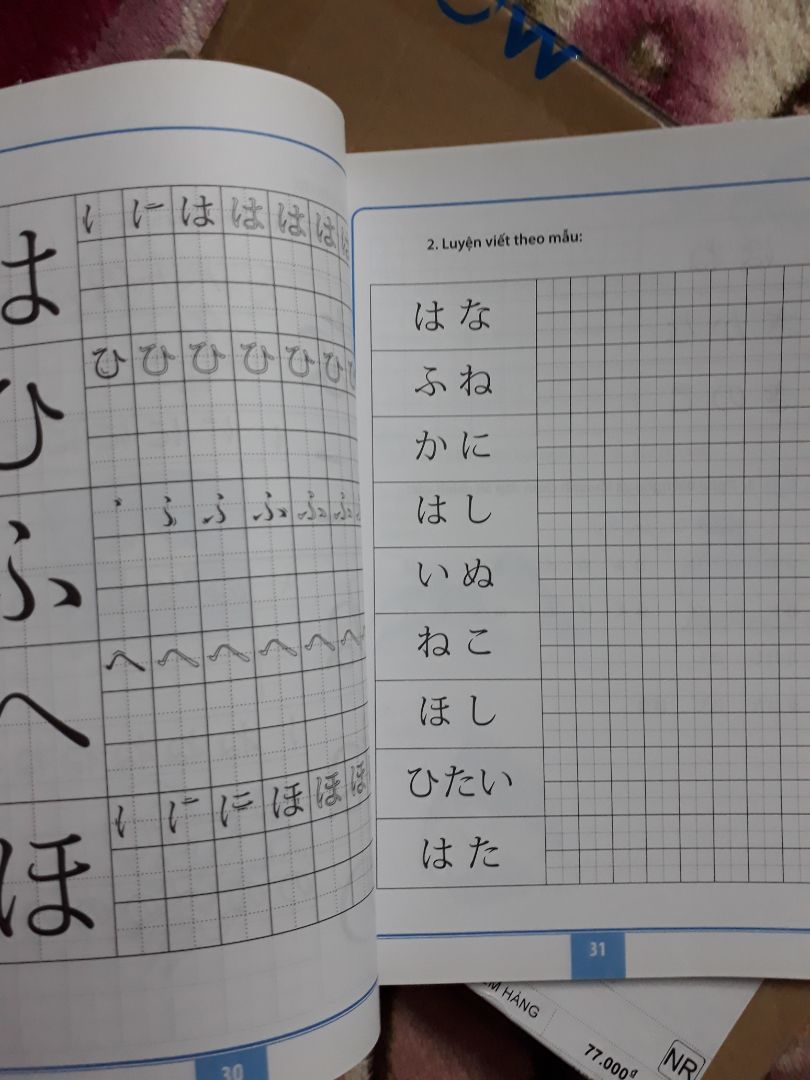 ew
は
し に は は は は は
ひ
ひ ひ ひ ひ ひ ひ ひ
ふ
ふ ふ ふ ふ ふ
へ
へ へ へ へ へ へ
ほ
ほ ほ ほ
30
2. Luyện viết theo mẫu:
はな
ふね
かに
はし
いぬ
ねこ
ほし
ひたい
はた
31
HÀNG
77.000đ
NR